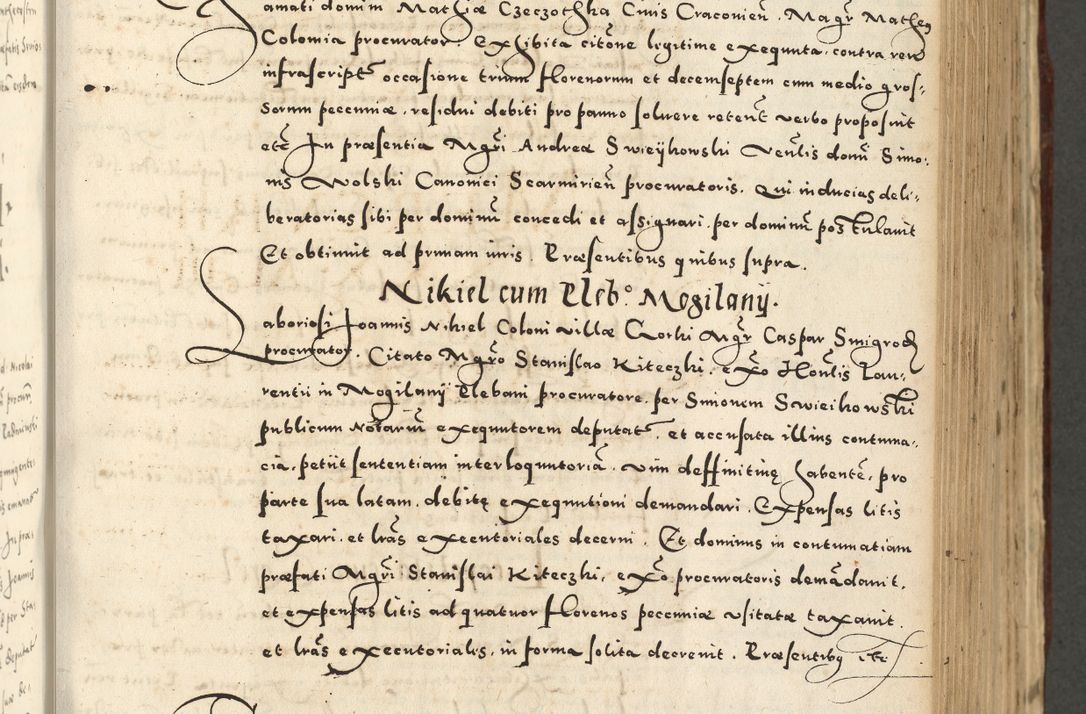 amati domini Mathiæ Czeczothka Civis Craconien̄. Magr̄ Mathe
Colomia procurator. Exhibita citōne legitime exequuta, contra reū
infrascriptū occasione trium florenorum et decemseptem cum medio gros-
sorum pecuniæ, residui debiti pro panno solvere retent̄ verbo proposuit
etc̄ In præsentia Mgr̄i Andreæ Swieÿkowski Ven̄lis domi Simo-
nis Wolski Canonici Scarmirien̄ procuratoris. Qui inducias deli-
beratorias sibi per dominū concedi et assignari, per dominū postulavit
Et obtinuit ad primam iuris. Præsentibus quibus supra.
Nikiel cum Pleb.o Mogilanÿ.
Laboriosi Joannis Nikiel Coloni villæ Gorki Mgr̄ Caspar Smigrod
procurator. Citato Mgr̄o Stanislao Kiteczki, ex̄o Hon̄lis Lau-
rentii in Mogilanÿ Plebani procuratore, per Simonem Swieikowski
publicum Notariū exequutorem deputat̄, et accusata illius contuma-
cia, petiit sententiam interloquutoriā, vim deffinitivę habentē, pro
parte sua latam, debitę exequutioni demandari. Expensas litis
taxari, et lrās executoriales decerni. Et dominus in contumatiam
præfati Mgr̄i Stanislai Kiteczki, ex̄o procuratoris demādavit,
et expensas litis ad quatuor florenos pecuniæ usitatæ taxavit,
et lrās executoriales, in forma solita decrevit. Præsentibꝫ ite